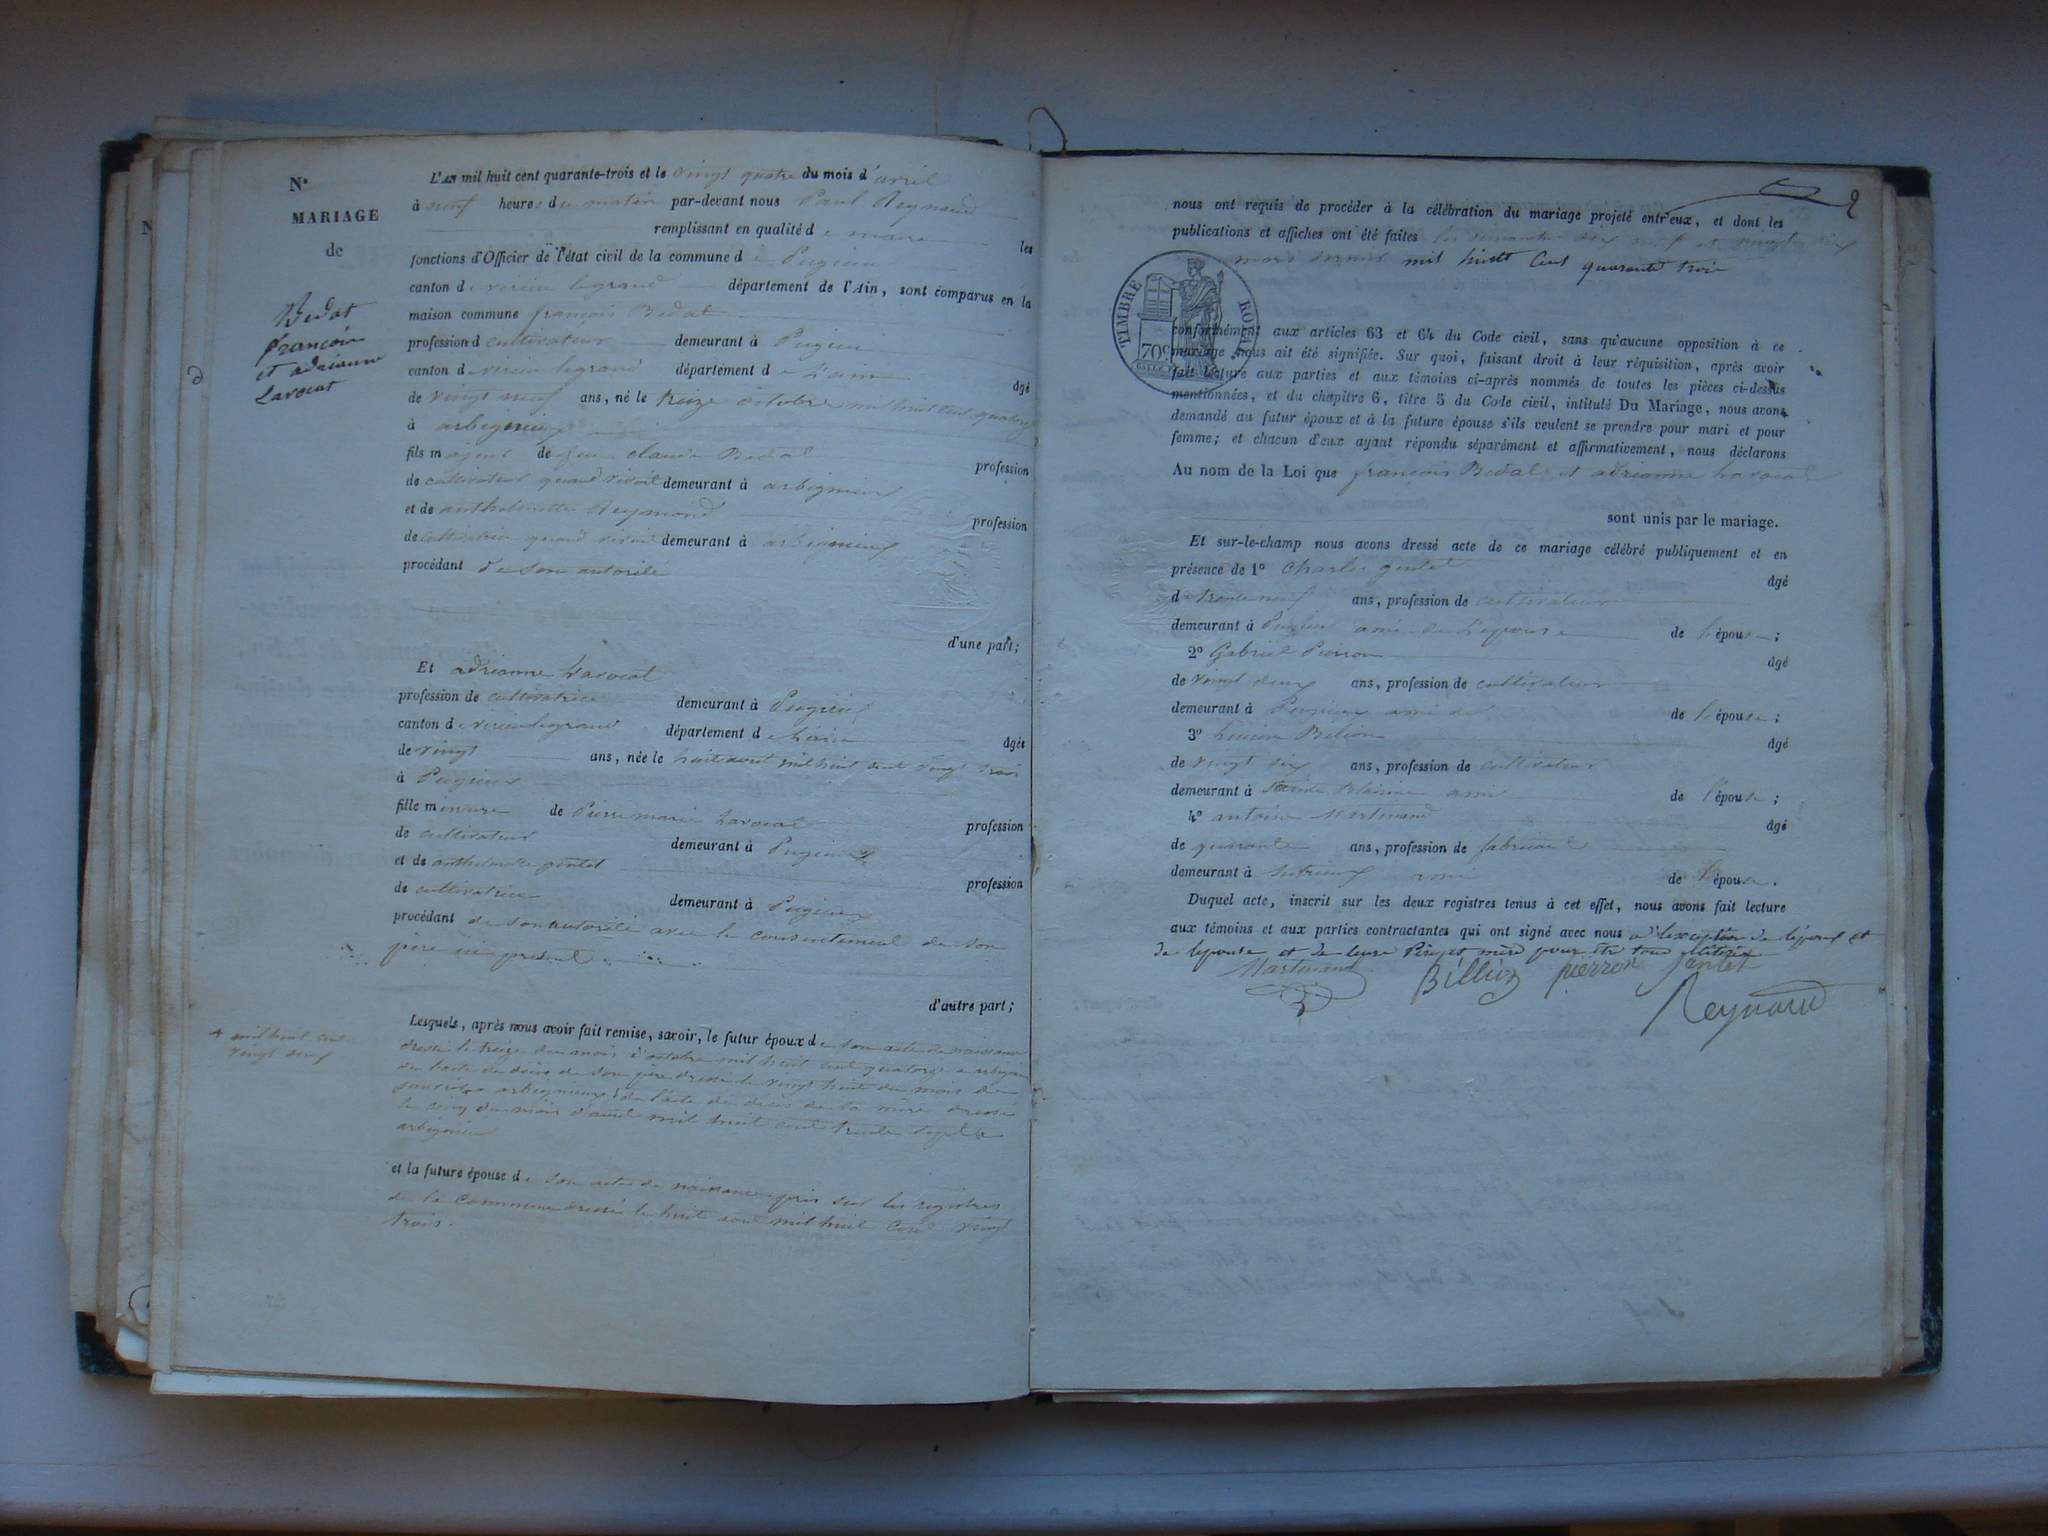 N°
MARIAGE
de
Bedat
françois
et adrianne
Lavocat
L'AN mil huit cent quarante-trois et le vingt quatre du mois d'avril
à neuf heures du matin par-devant nous Paul Reynaud
remplissant en qualité de maire les
fonctions d'Officier de l'état civil de la commune de Pugieu
canton de virieu legrand département de l'Ain, sont comparus en la
maison commune françois Bedat
profession d cultivateur demeurant à Pugieu
canton de virieu legrand département de L'ain âgé
de vingt neuf ans, né le treize octobre mil huit cent quatorze
à arbignieu
fils majeur de feu claude Bedat profession
de cultivateur quand vivait demeurant à arbignieu
et de anthelmette Reymond profession
de cultivatrice quand vivait demeurant à arbignieu
procédant de son autorité
d'une part;
Et adrianne Lavocat
profession de cultivatrice demeurant à Pugieux
canton de virieu legrand département de Lain âgée
de vingt ans, née le huit aout mil huit cent vingt trois
à Pugieux
fille mineure de Pierre marie Lavocat profession
de cultivateur demeurant à Pugieux
et de anthelmette gentet profession
de cultivatrice demeurant à Pugieux
procédant de son autorité avec le consentement de son
père ici présent
d'autre part;
Lesquels, après nous avoir fait remise, savoir, le futur époux de son acte de naissance
dressé le treize du mois d'octobre mil huit cent quatorze a arbignieu
de l'acte de décès de son père dressé le vingt huit du mois de
+ mil huit cent
vingt neuf
arbignieux de l'acte de décès de la mère dressé
le cinq du mois d'avril mil huit cent trente sept a
arbignieu
et la future épouse de son acte de naissance pris sur les registres
de la commune dressé le huit aout mil huit cent vingt
trois.
2
nous ont requis de procéder à la célébration du mariage projeté entr'eux, et dont les
publications et affiches ont été faites les dix neuf et vingt six
mars dernier mil huit Cent quarante trois
TIMBRE ROYAL
70c
conformément aux articles 63 et 64 du Code civil, sans qu'aucune opposition à ce
mariage nous ait été signifiée. Sur quoi, faisant droit à leur réquisition, après avoir
fait lecture aux parties et aux témoins ci-après nommés de toutes les pièces ci-dessus
mentionnées, et du chapitre 6, titre 5 du Code civil, intitulé Du Mariage, nous avons
demandé au futur époux et à la future épouse s'ils veulent se prendre pour mari et pour
femme; et chacun d'eux ayant répondu séparément et affirmativement, nous déclarons
Au nom de la Loi que françois Bedat et adrianne Lavocat
sont unis par le mariage.
Et sur-le-champ nous avons dressé acte de ce mariage célébré publiquement et en
présence de 1° Charles gentet âgé
de trente neuf ans, profession de cultivateur
demeurant à Pugieu ami de L'epouse de l'épouse;
2° Gabriel Pierron âgé
de vingt deux ans, profession de cultivateur
demeurant à Pugieux ami de de l'épouse;
3° Billion âgé
de vingt six ans, profession de cultivateur
demeurant à Blaisine ami de l'épouse;
4° antoine Martinand âgé
de quarante ans, profession de fabricant
demeurant à ami de l'épouse.
Duquel acte, inscrit sur les deux registres tenus à cet effet, nous avons fait lecture
aux témoins et aux parties contractantes qui ont signé avec nous a l'exception de l'époux et
de lepouse et de leurs Père et mère pour être tous illitérés
Martinand Billion pierron Gentet
Reynaud